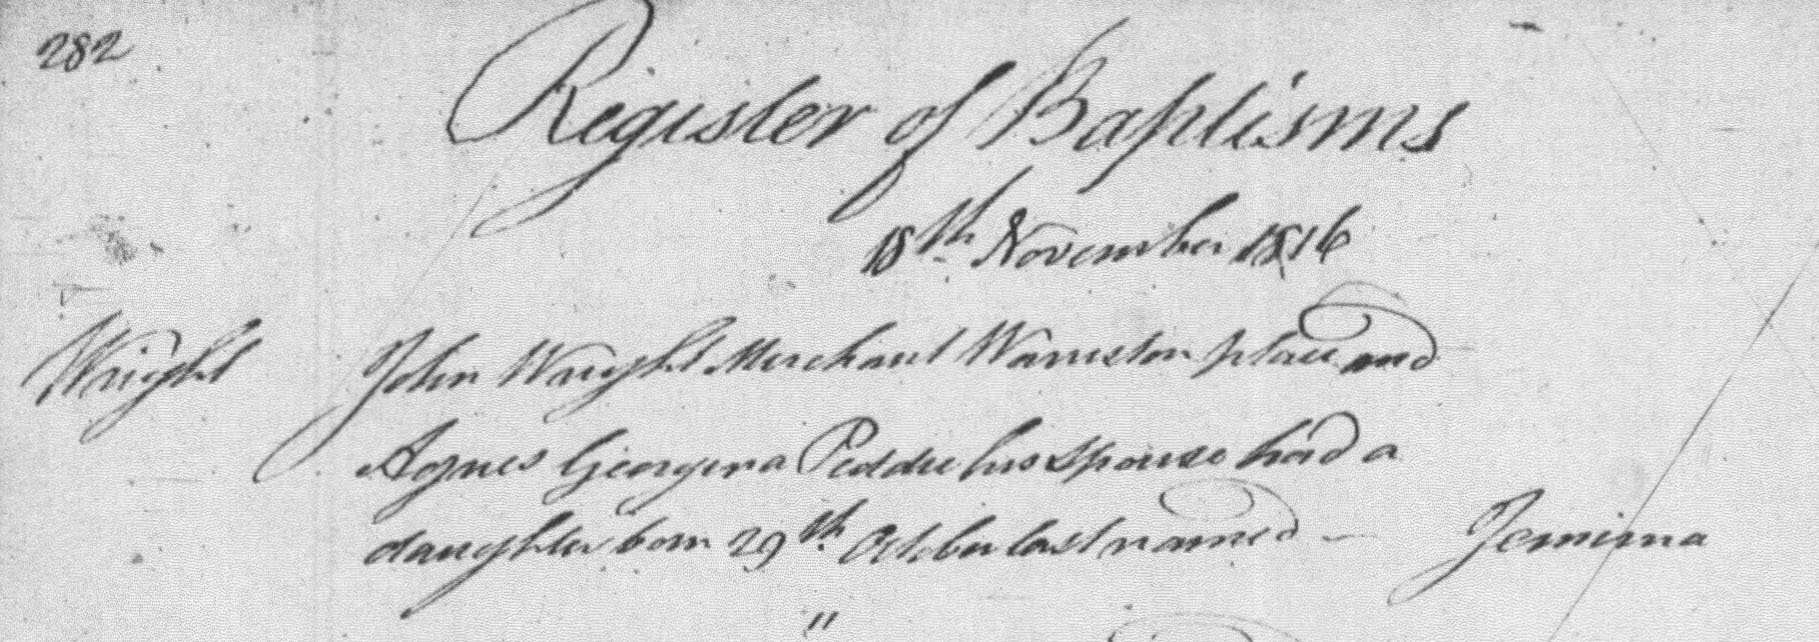 282
Register of Baptisms
18th November 1816
Wright John Wright Merchant Warriston place and
Agnes Georgina Peddie his spouse had a
daughter born 29th October last named — Jemima
"